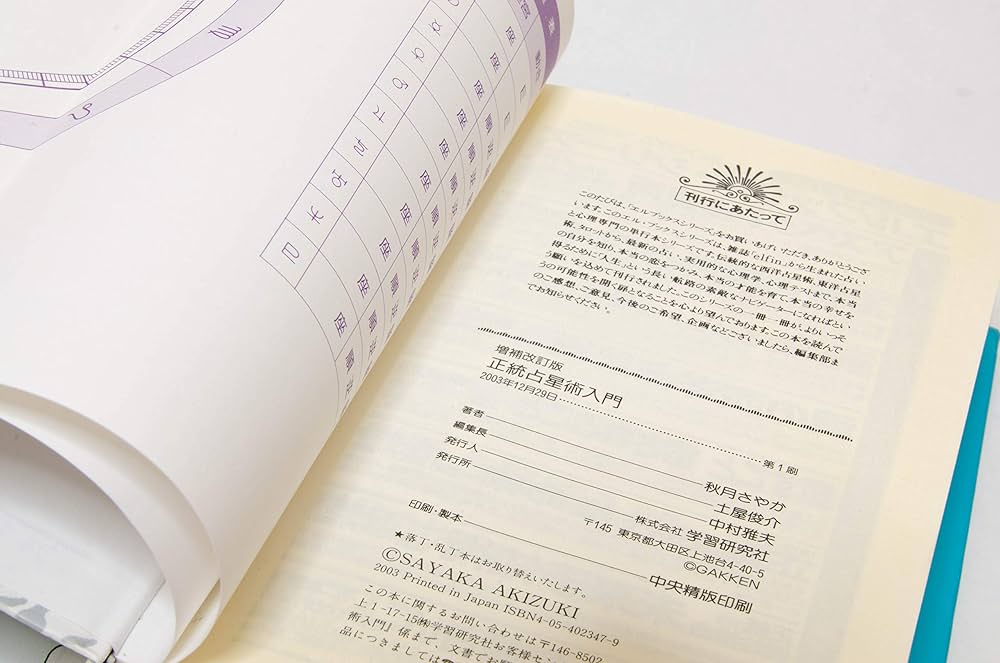 刊行にあたって
このたびは、「エルブックスシリーズ」をお買いあげいただき、ありがとうござ
います。このエル・ブックスシリーズは、雑誌「elfin」から生まれた占い
と心理専門の単行本シリーズです。伝統的な西洋占星術、東洋占星
術、タロットから、最新の占い、実用的な心理学、心理テストまで、本当
の自分を知り、本当の恋をつかみ、本当の才能を育て、本当の幸せを
得るために「人生」という長い航路の素敵なナビゲーターになればとい
う願いを込めて刊行されました。このシリーズの一冊一冊が、よりいっそ
うの可能性を開く扉となることを心より望んでおります。この本を読んで
のご感想、ご意見、今後のご希望、企画などございましたら、編集部ま
でお知らせください。
増補改訂版
正統占星術入門
2003年12月29日 第1刷
著者 秋月さやか
編集長 土屋俊介
発行人 中村雅夫
発行所 株式会社 学習研究社
〒145 東京都大田区上池台4-40-5
©GAKKEN
印刷・製本 中央精版印刷
★落丁・乱丁本はお取り替えいたします。
©SAYAKA AKIZUKI
2003 Printed in Japan ISBN4-05-402347-9
この本に関するお問い合わせは〒146-8502
上1-17-15㈱学習研究社お客様セン
術入門』係まで、文書でお
品につきましては